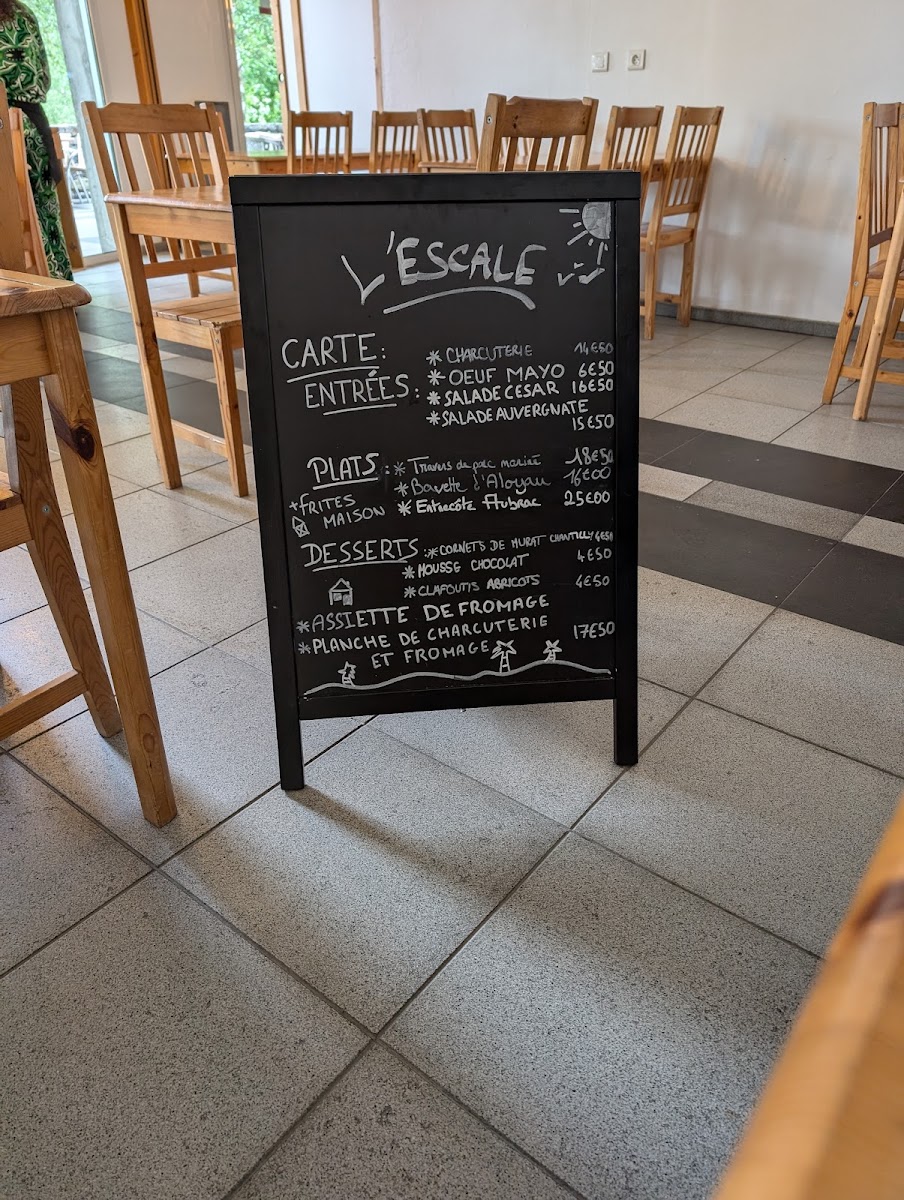 L'ESCALE
CARTE:
ENTRÉES: * CHARCUTERIE 14€50
* OEUF MAYO 6€50
* SALADE CESAR 16€50
* SALADE AUVERGNATE
15€50
PLATS: * Travers de porc mariné 18€50
* Bavette d'Aloyau 16€00
* Entrecôte Aubrac 25€00
+ FRITES
MAISON
DESSERTS: * CORNETS DE MURAT CHANTILLY 4€50
* MOUSSE CHOCOLAT 4€50
* CLAFOUTIS ABRICOTS 4€50
* ASSIETTE DE FROMAGE
* PLANCHE DE CHARCUTERIE
ET FROMAGE 17€50